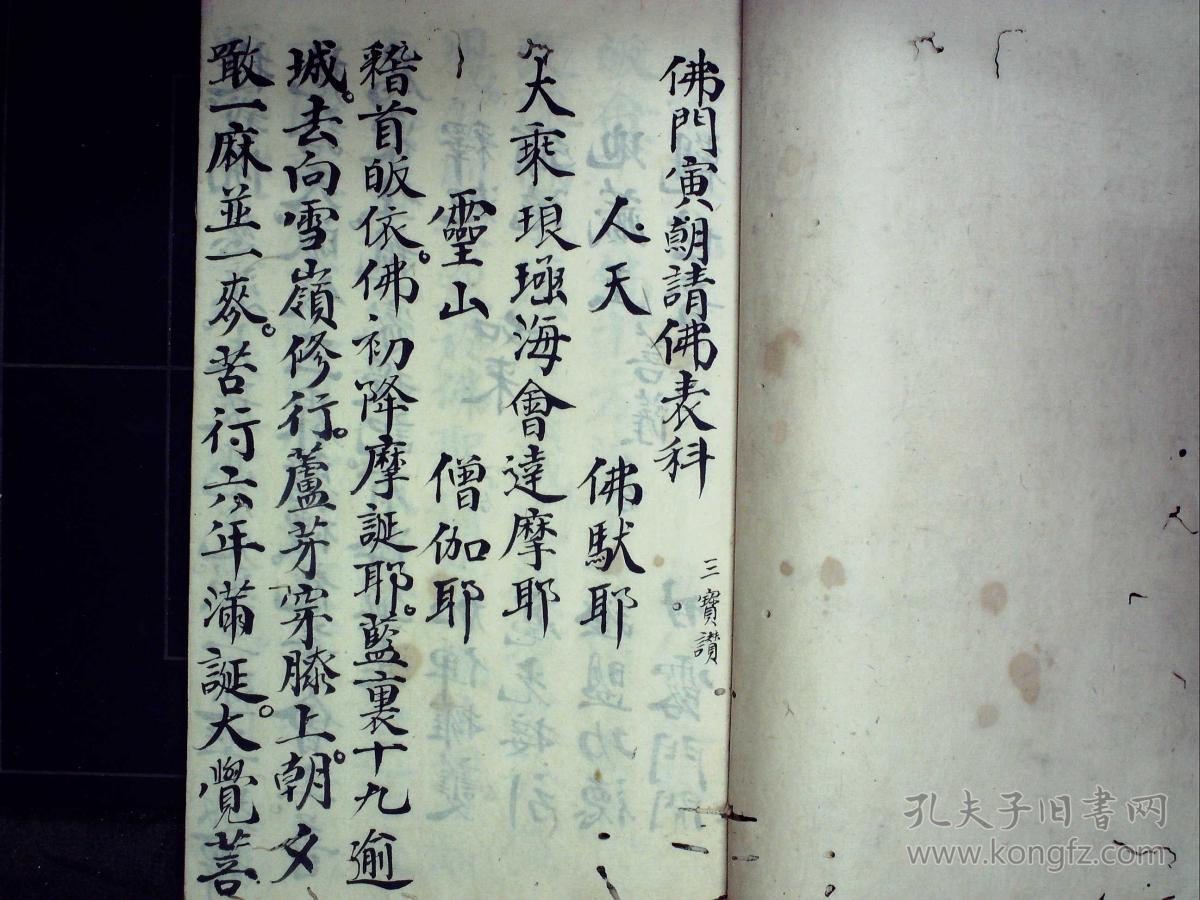 佛門寅朝請佛表科
三寶讃
人天 佛馱耶
大乘琅璄海會達摩耶
靈山 僧伽耶
稽首皈依。佛初降摩誕耶。藍裏十九逾
城。去向雪嶺修行。蘆芽穿膝上。朝夕
噉一麻並一麥。苦行六年滿誕。大覺菩
孔夫子旧书网
www.kongfz.com